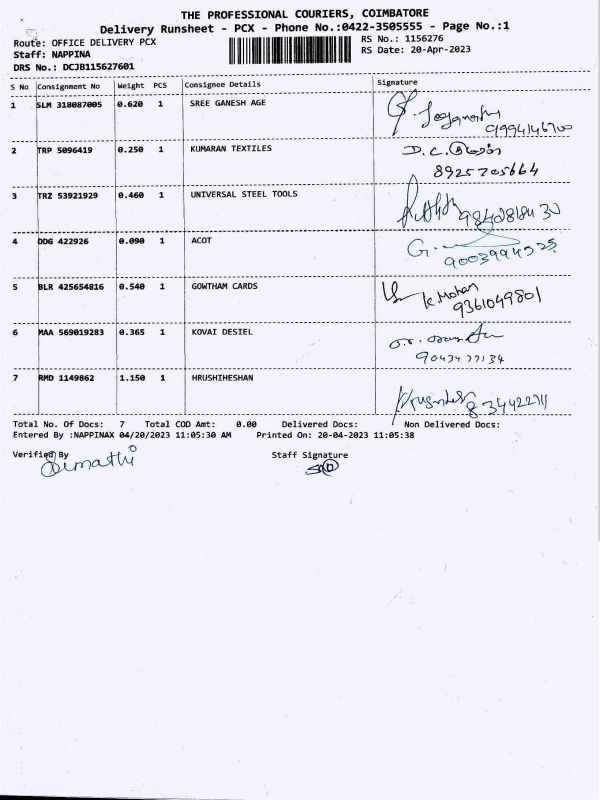 THE PROFESSIONAL COURIERS, COIMBATORE
Delivery Runsheet - PCX - Phone No.:0422-3505555 - Page No.:1
Route: OFFICE DELIVERY PCX
RS No.: 1156276
Staff: NAPPINA
RS Date: 20-Apr-2023
DRS No.: DCJB115627601
S No Consignment No Weight PCS Consignee Details Signature
1 SLM 318087005 0.620 1 SREE GANESH AGE
2 TRP 5096419 0.250 1 KUMARAN TEXTILES D.C.
8925705664
3 TRZ 53921929 0.460 1 UNIVERSAL STEEL TOOLS
4 DDG 422926 0.090 1 ACOT G.
9003994525
5 BLR 425654816 0.540 1 GOWTHAM CARDS K Mohan
9361049801
6 MAA 569019283 0.365 1 KOVAI DESIEL
7 RMD 1149862 1.150 1 HRUSHIHESHAN
Total No. Of Docs: 7 Total COD Amt: 0.00 Delivered Docs: Non Delivered Docs:
Entered By :NAPPINAX 04/20/2023 11:05:30 AM Printed On: 20-04-2023 11:05:38
Verified By Staff Signature